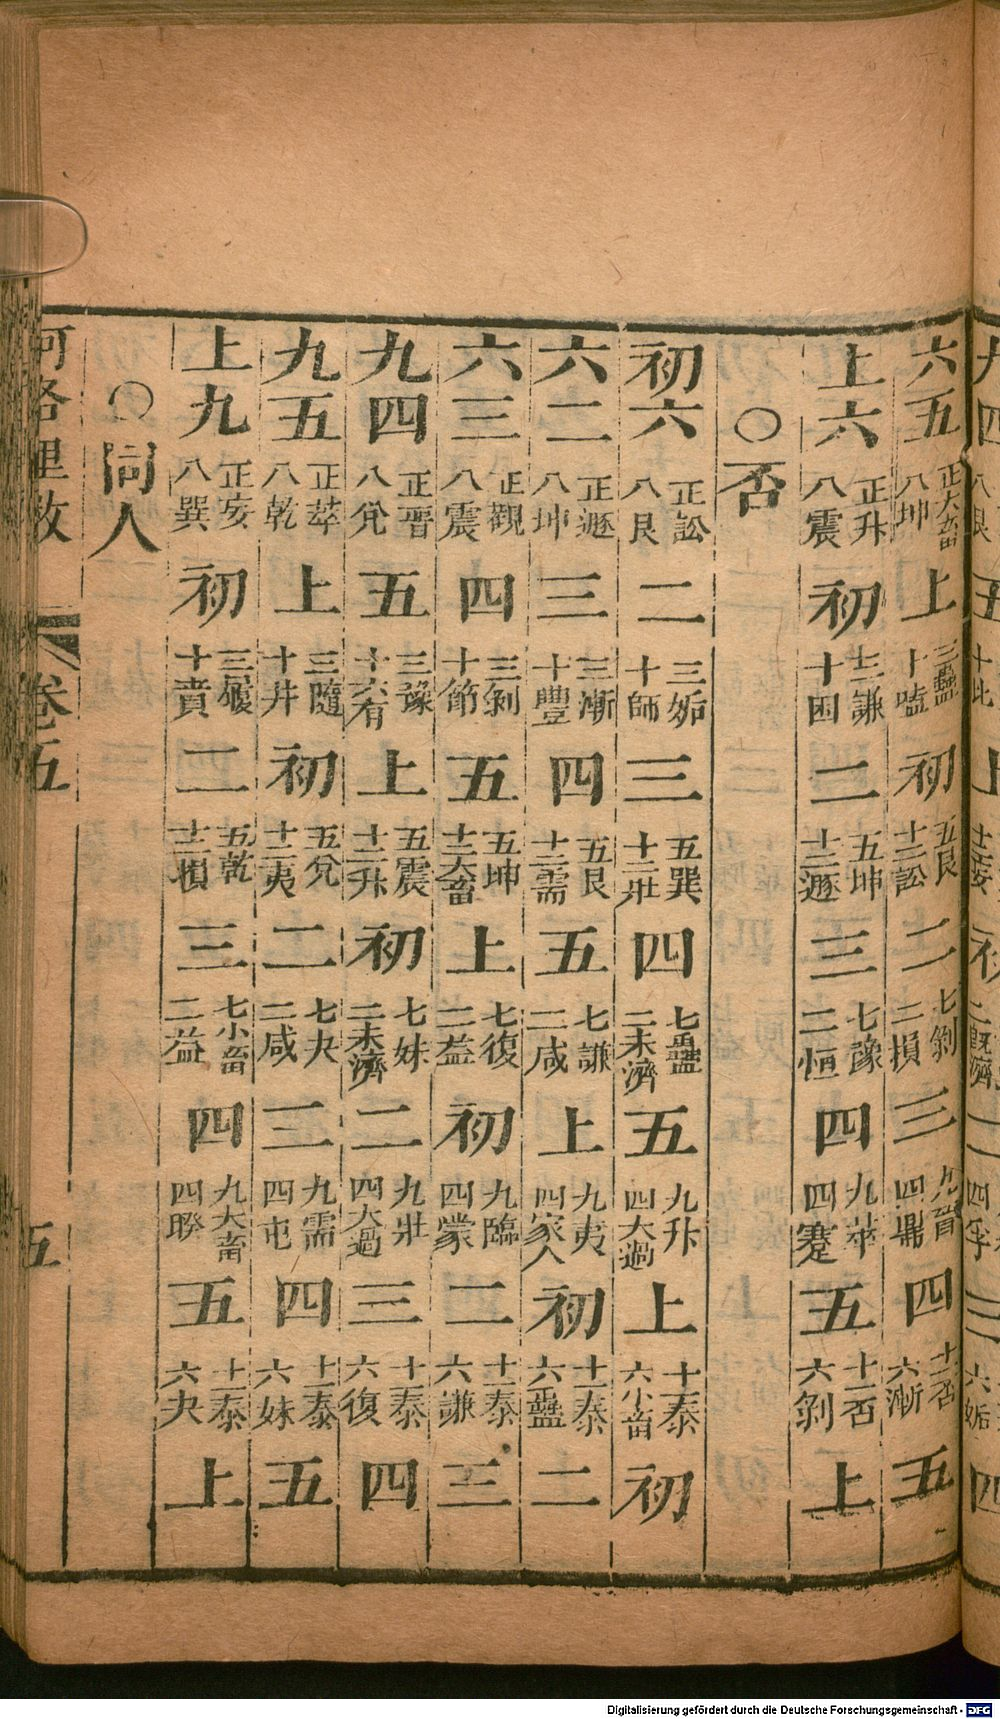 九四八艮五十比上十二妄初二既濟二四孚三六姤四
六五正大畜八坤上三蠱十嗑初五艮十二訟二七剝二損三九晉四鼎四十一否六漸五
上六正升八震初三謙十困二五坤十二遯三七豫二恒四九萃四蹇五十一否六剝上
○否
初六正訟八艮二三姤十師三五巽十二壯四七蠱二未濟五九升四大過上十一泰六小畜初
六二正遯八坤三三漸十豐四五艮十二需五七謙二咸上九夷四家人初十一泰六蠱二
六三正觀八震四三剝十節五五坤十二大畜上七復二益初九臨四蒙二十一泰六謙三
九四正晉八兌五三豫十大有上五震十二升初七妹二未濟二九壯四大過三十一泰六復四
九五正萃八乾上三隨十井初五兌十二夷二七夬二咸三九需四屯四十一泰六妹五
上九正妄八巽初三履十賁二五乾十二損三七小畜二益四九大畜四睽五十一泰六夬上
○同人
河洛理數 卷五 五
Digitalisierung gefördert durch die Deutsche Forschungsgemeinschaft - DFG